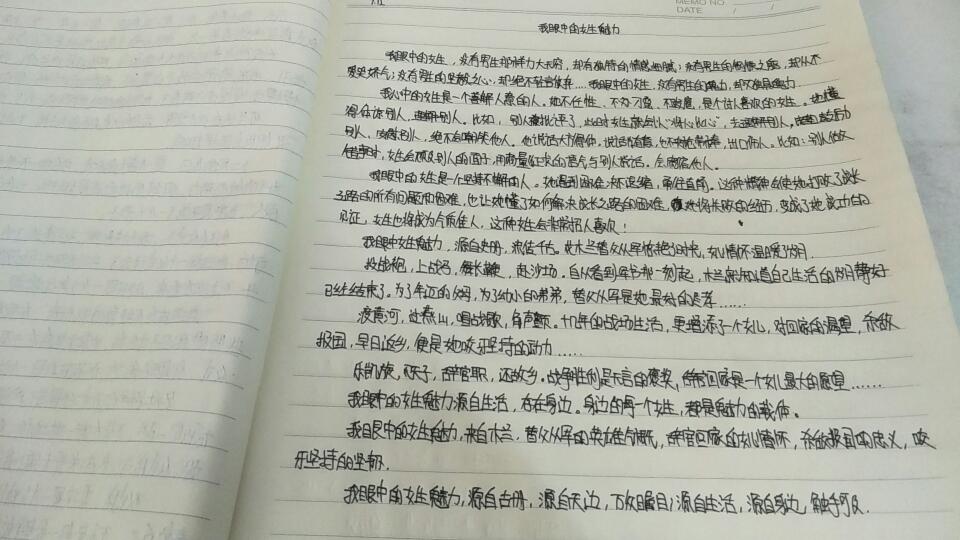 MEMO NO.
DATE / /
我眼中的女生魅力
我眼中的女生，没有男生那样力大无穷，却有独特的情感细腻；没有男生的
气；没有男生的坚毅之心，却绝不轻言放弃……我眼中的女生，没有男生的魄力，却不
我心中的女生是一个善解人意的人。她不任性，不刁蛮，不
体谅别人，理解别人。比如，别人被批评了，此时女生就会以“将心比心”，去理解别人，
别人，安慰别人，绝不会嘲笑他人。她说话大方得体，出口伤人。比如：别人做
错事时，女生会顾及别人的面子，用商量的语气与别人说话。
我眼中的女生是一个坚持不懈的人。她遇到困难决不退缩，勇往直前。这种精神会使她打败了成长
之路的所有问题和困难，也让她懂了如何解决成长之路的困难，她将长成的经历，变成了她成功的
见证，女生也将成为人，这种女生会非常招人喜欢！
我眼中女生魅力，源自史册，流传千古。花木兰替父从军惊艳了时光，女儿情怀温暖了岁月。
披战袍，上战马，舞长鞭，赴沙场。自从看到军书那一刻起，木兰就知道自己生活的岁月静好
已经结束了。为了年迈的父母，为了幼小的弟弟，替父从军是她最好的选择……
渡黄河，过燕山，唱战歌，角声颤。十几年的战场生活，更增添了一个女儿，对回家的渴望，杀敌
报国，早日返乡，便是她咬牙坚持的动力……
凯旋，天子，辞官职，还故乡。战争胜利是无言的褒奖，辞官回家是一个女儿最大的愿望……
我眼中的女生魅力源自生活，存在身边。身边的每一个女生，都是魅力的载体。
我眼中的女生魅力，来自木兰，替父从军的英雄气概，辞官回家的女儿情怀，杀敌报国的忠义，咬
牙坚持的坚韧。
我眼中的女生魅力，源自古册，源自天边，万众瞩目；源自生活，源自身边，触手可及。